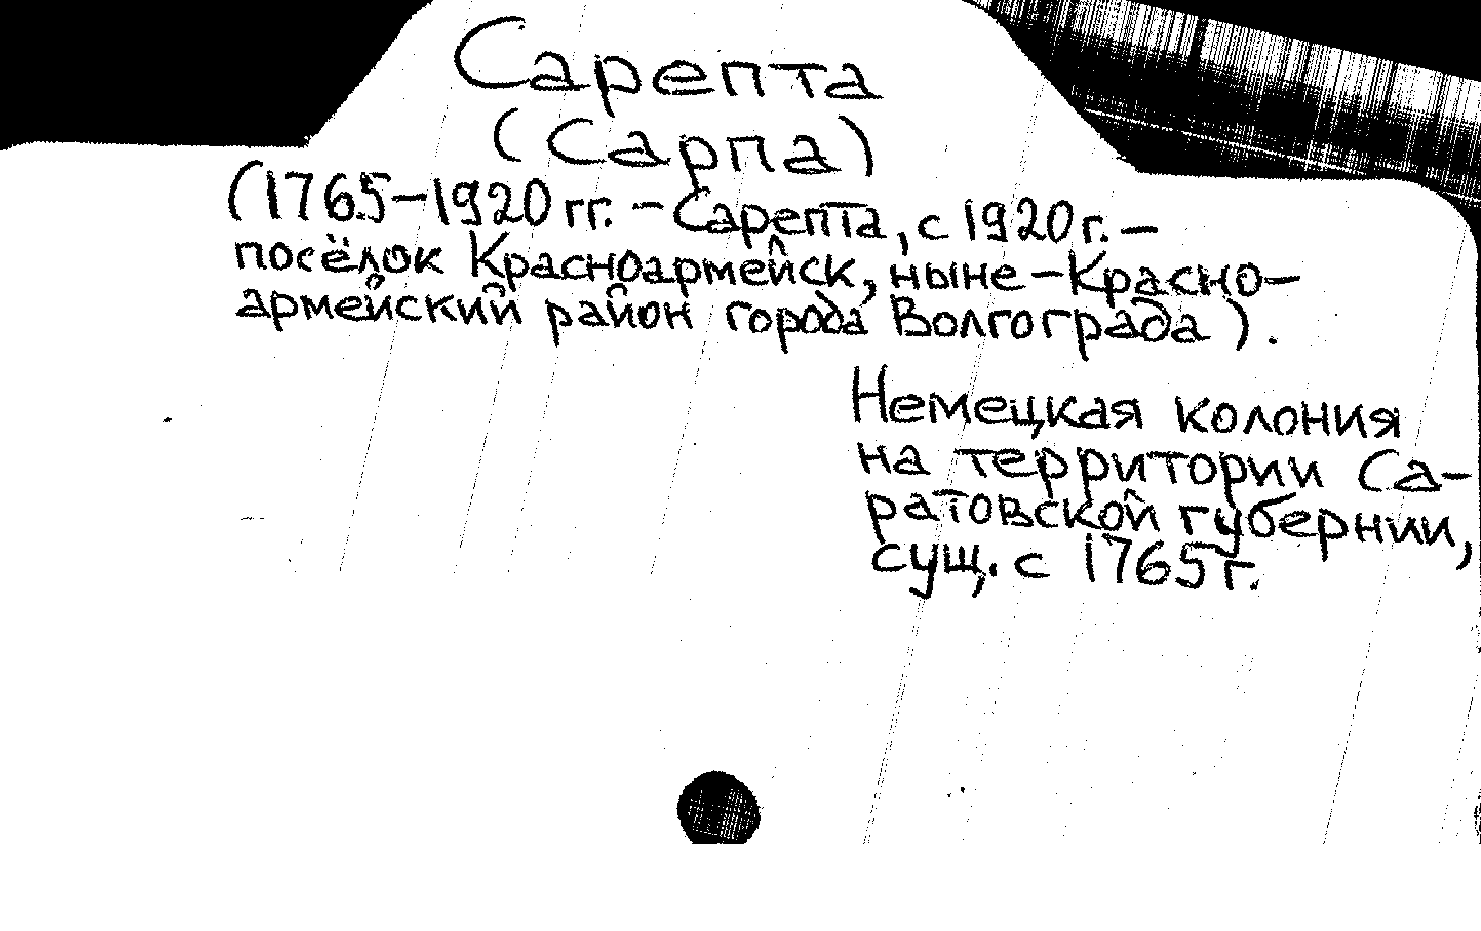 Сарепта
(Сарпа)
(1765–1920 гг. – Сарепта, с 1920 г. –
посёлок Красноармейск, ныне – Красно-
армейский район города Волгограда).
Немецкая колония
на территории Са-
ратовской губернии,
сущ. с 1765 г.